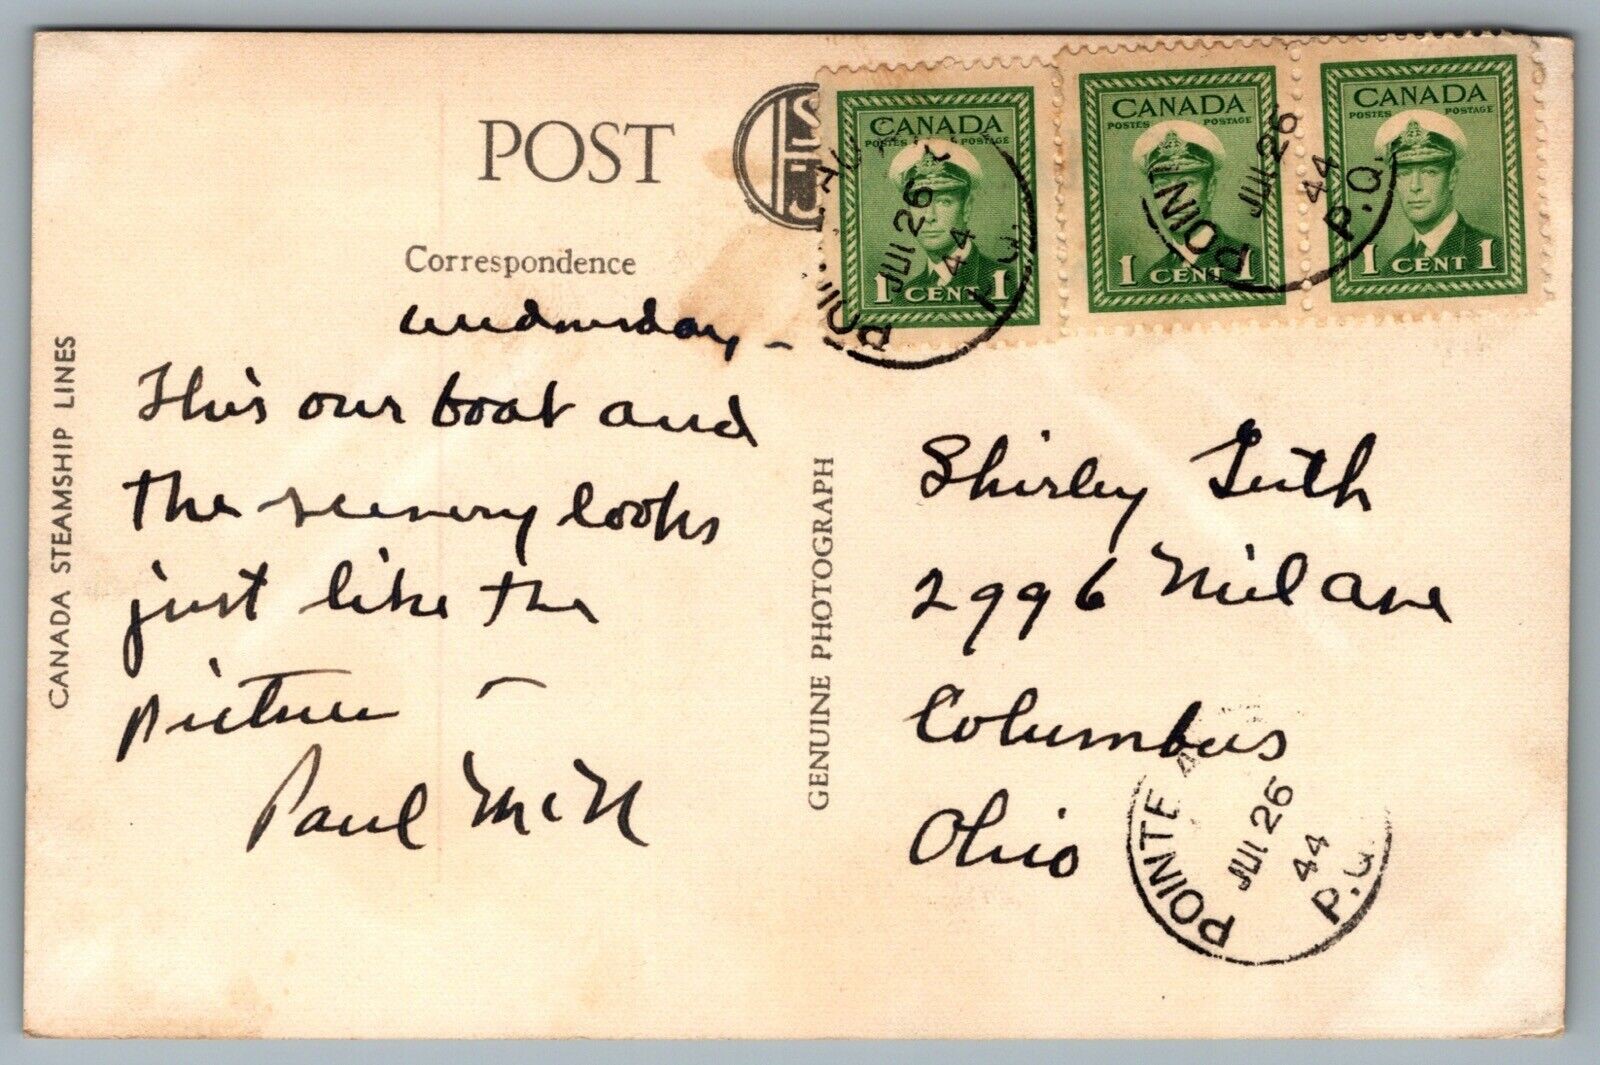 POST
CANADA
POSTES POSTAGE
1 CENT 1
CANADA
POSTES POSTAGE
1 CENT 1
CANADA
POSTES POSTAGE
1 CENT 1
JUL 26
44
POINT
JUL 26
44
P.Q.
Correspondence
Wednesday -
This our boat and
the scenery looks
just like the
picture -
Paul McN
CANADA STEAMSHIP LINES
GENUINE PHOTOGRAPH
Shirley
2996 Ave
Columbus
Ohio
POINTE
JUL 26
44
P.Q.